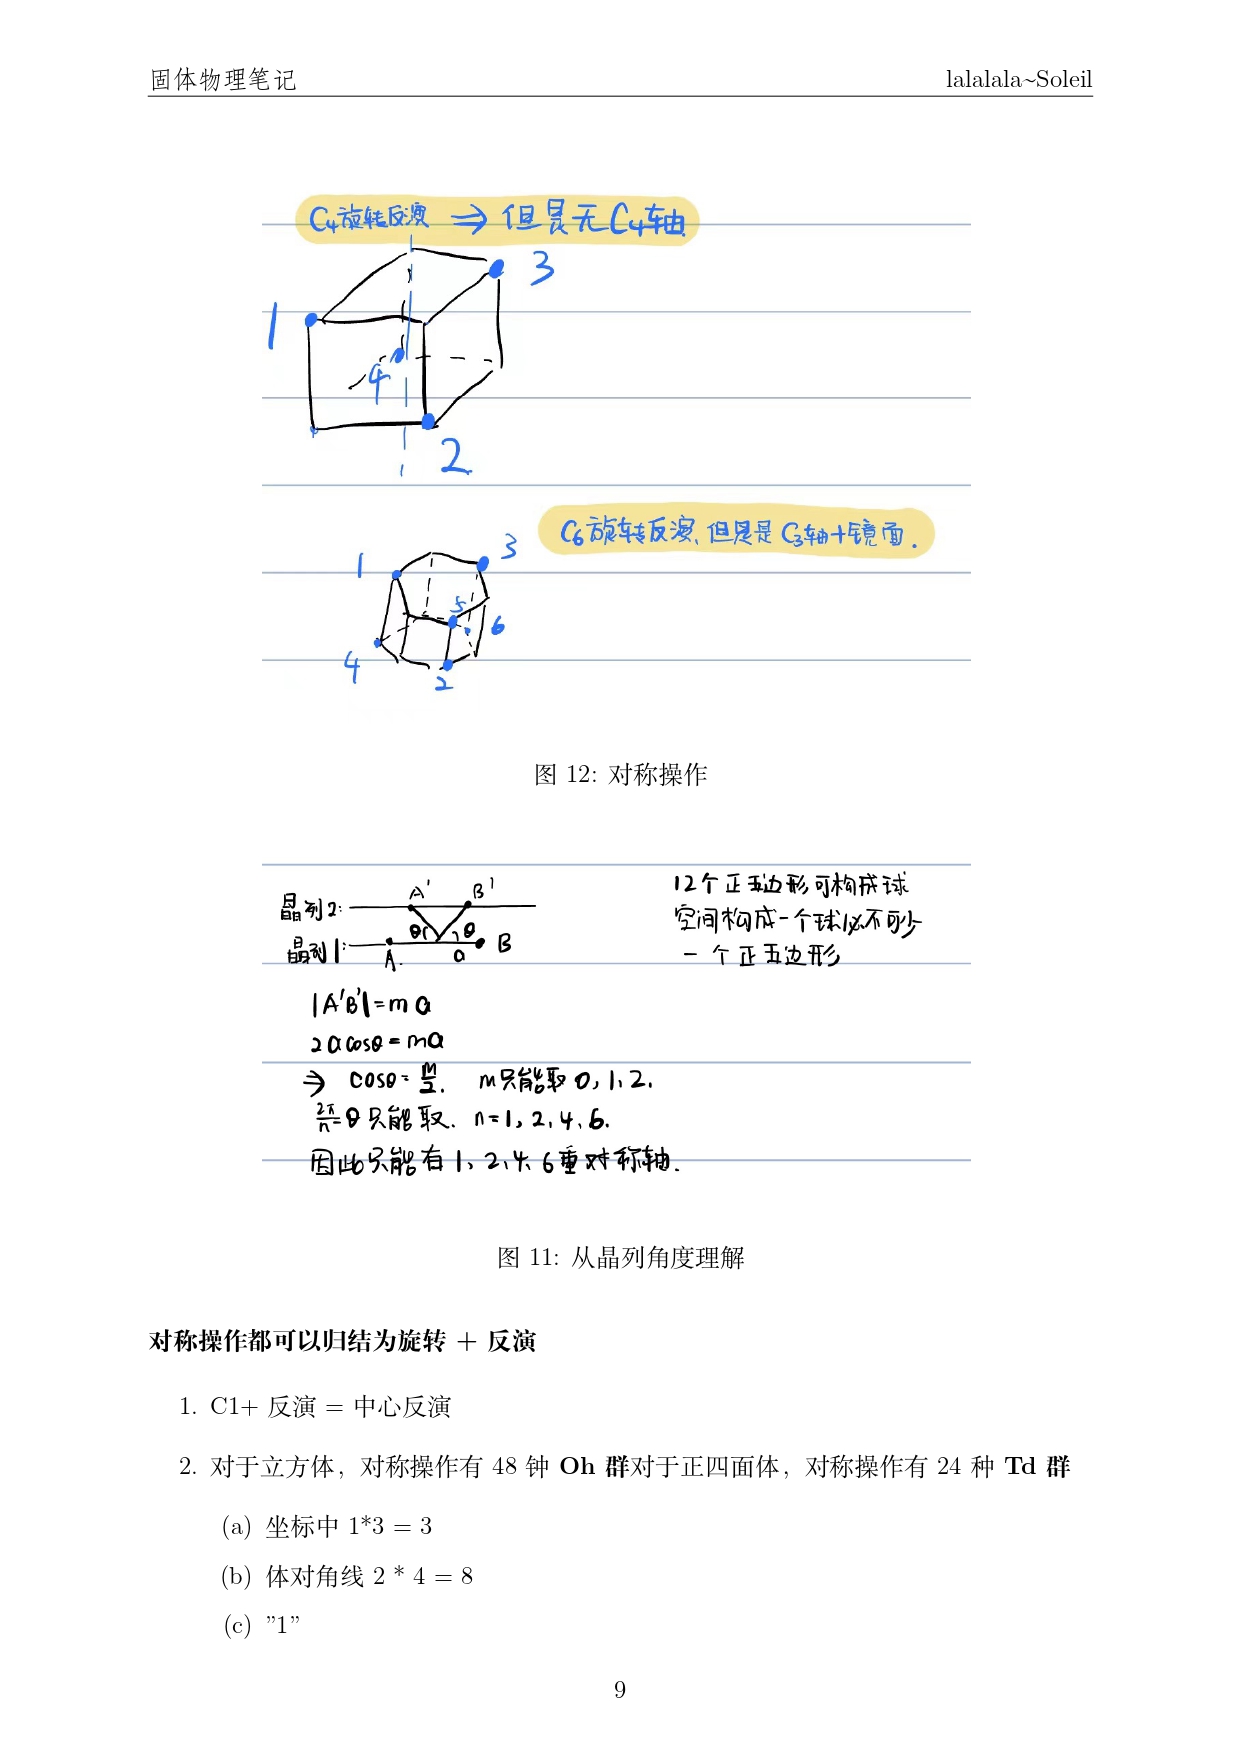 固体物理笔记 lalalala~Soleil
C₄旋转反演 ⇒ 但是无C₄轴
3
1
4
2
C₆旋转反演、但是是 C₃轴+镜面.
1 3
5
6
4
2
图 12: 对称操作
A' B' 12个正五边形可构成球
晶列2: 空间构成一个球必不可少
θ θ
晶列1: B 一个正五边形
A. a
|A'B'|=ma
2acosθ=ma
⇒ cosθ=m/2. m只能取0,1,2.
2π/n=θ只能取. n=1,2,4、6.
因此只能有1、2、4、6重对称轴.
图 11: 从晶列角度理解
对称操作都可以归结为旋转 + 反演
1. C1+ 反演 = 中心反演
2. 对于立方体，对称操作有 48 钟 Oh 群对于正四面体，对称操作有 24 种 Td 群
(a) 坐标中 1*3 = 3
(b) 体对角线 2 * 4 = 8
(c) ”1”
9